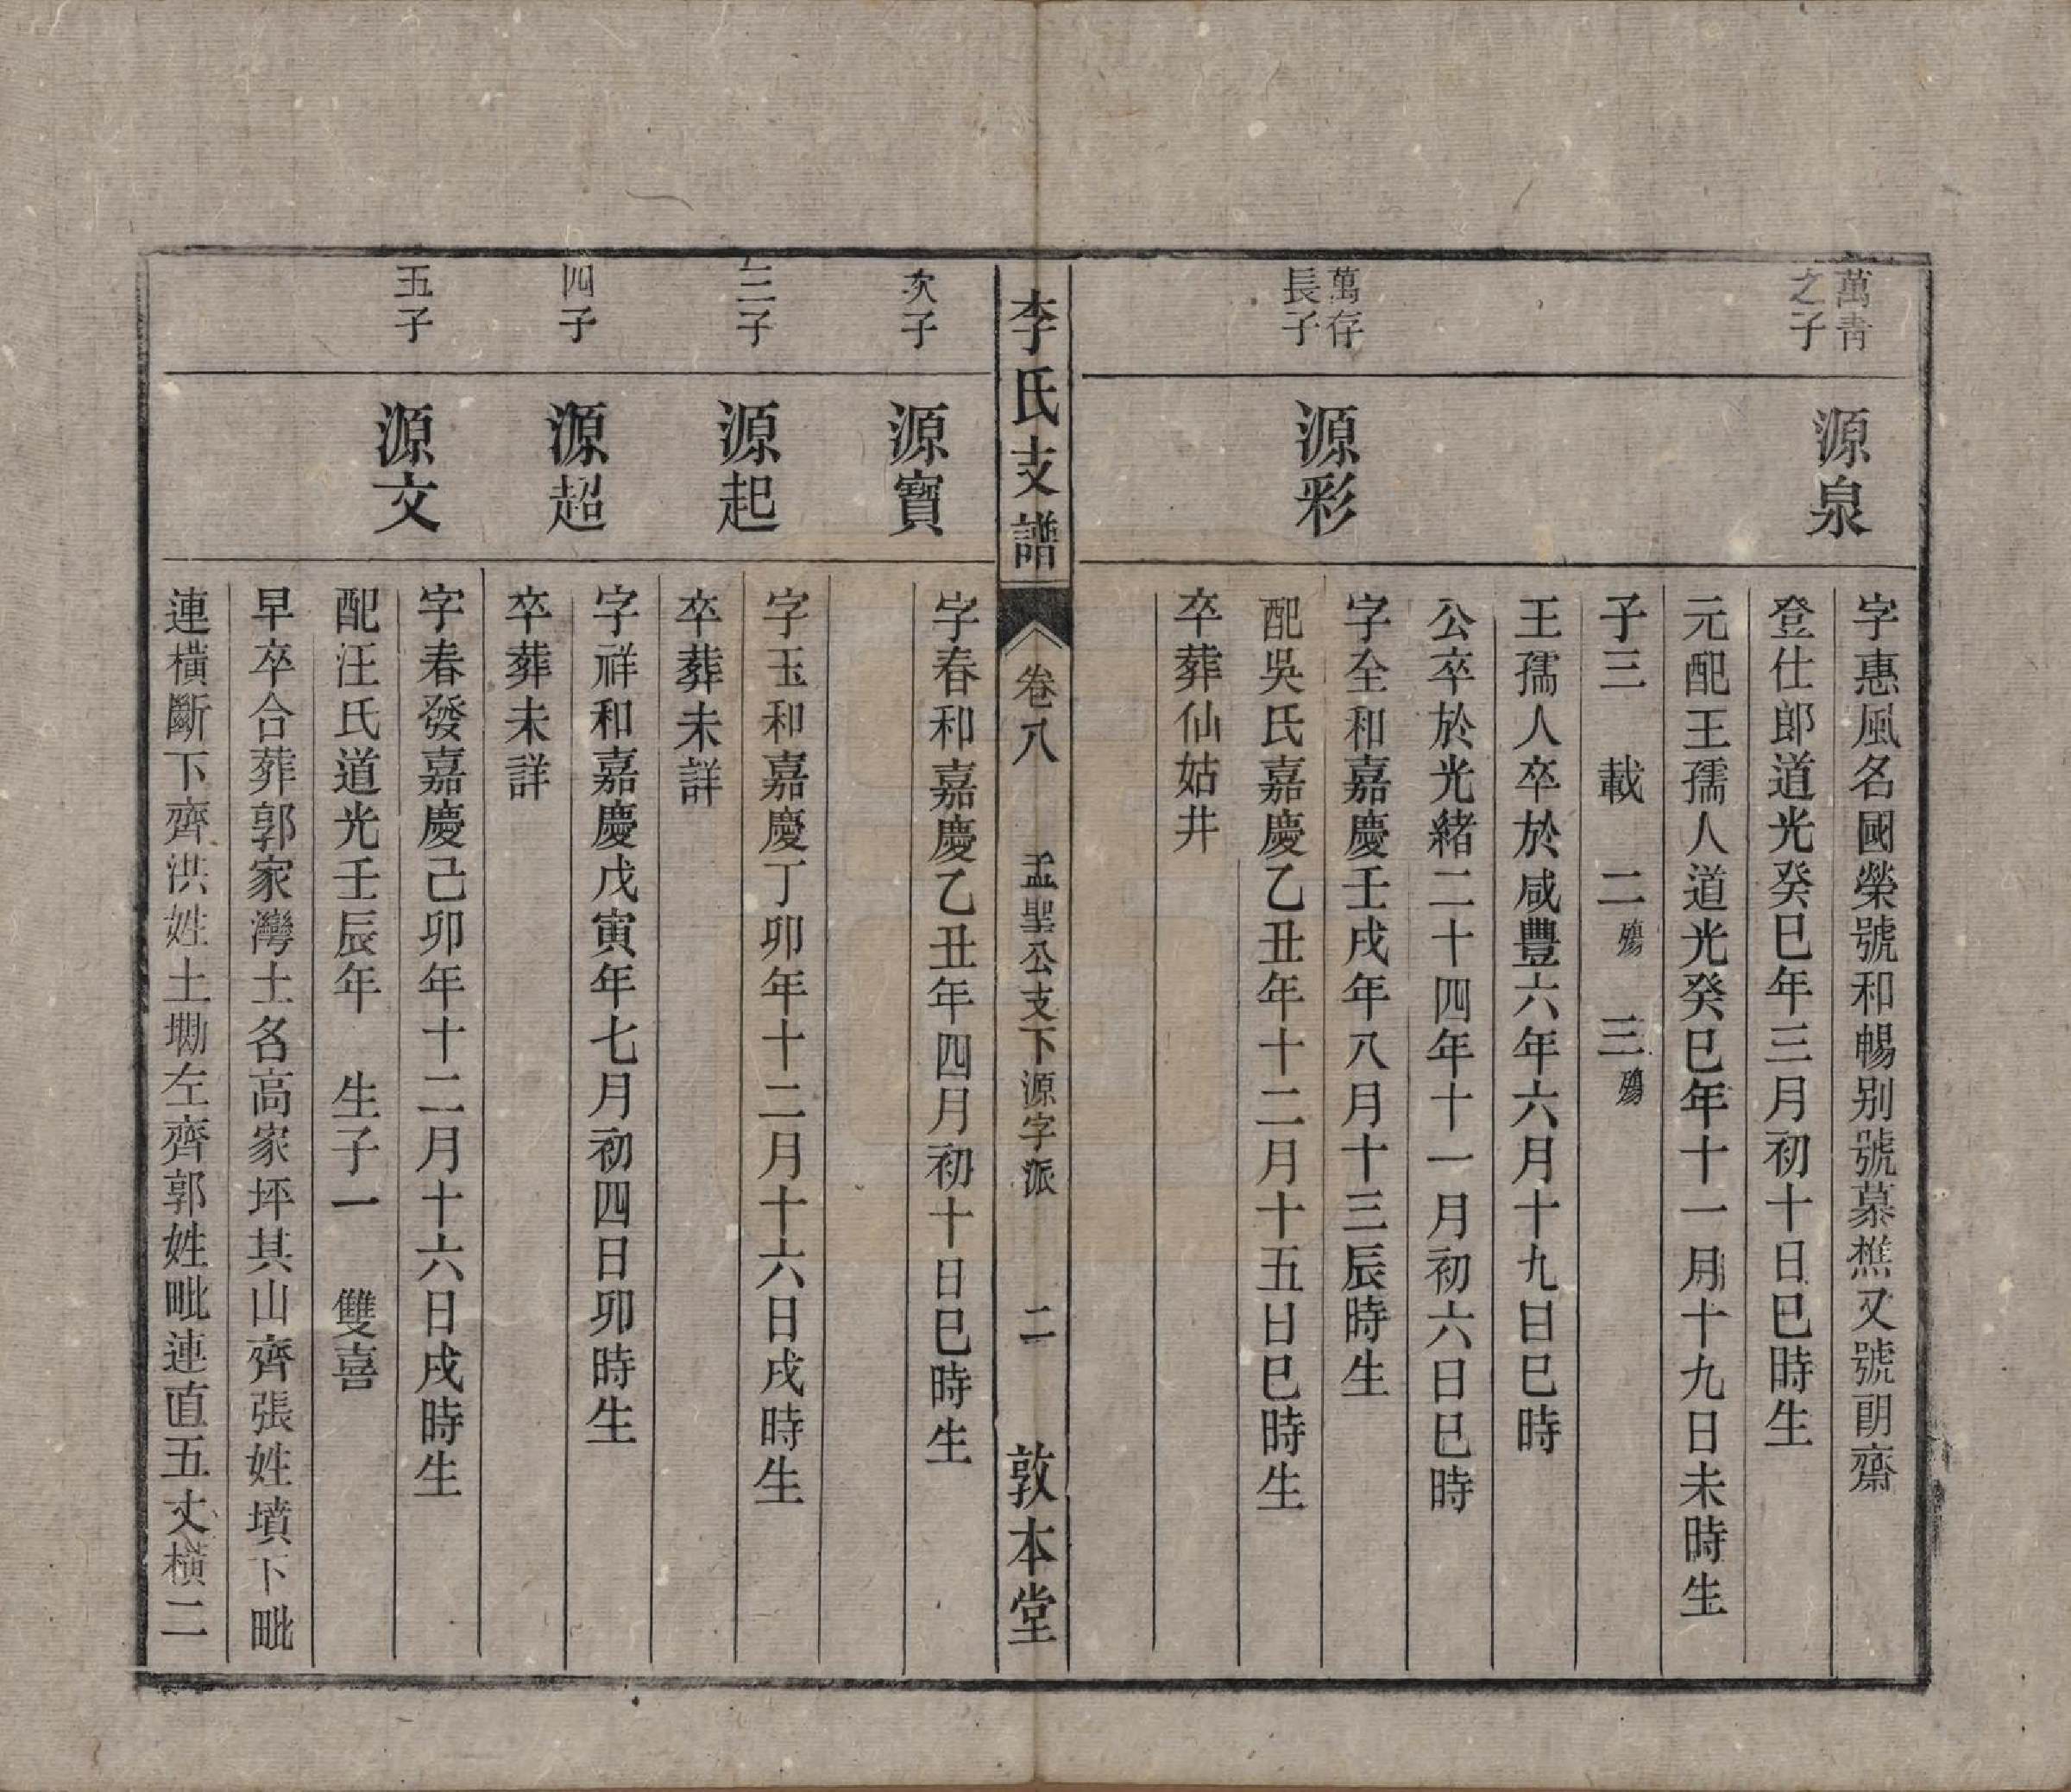 萬青
之子
源泉
字惠風名國榮號和暢别號慕樵又號朗齋
登仕郎道光癸巳年三月初十日巳時生
元配王孺人道光癸巳年十一月十九日未時生
子三 載 二殤 三殤
王孺人卒於咸豐六年六月十九日巳時
公卒於光緒二十四年十一月初六日巳時
萬存
長子
源彩
字全和嘉慶壬戌年八月十三辰時生
配吳氏嘉慶乙丑年十二月十五日巳時生
卒葬仙姑井
李氏支譜
卷八
孟聖公支下源字派
二
敦本堂
次子
源寶
字春和嘉慶乙丑年四月初十日巳時生
三子
源起
字玉和嘉慶丁卯年十二月十六日戌時生
卒葬未詳
四子
源超
字祥和嘉慶戊寅年七月初四日卯時生
卒葬未詳
五子
源文
字春發嘉慶己卯年十二月十六日戌時生
配汪氏道光壬辰年 生子一 雙喜
早卒合葬郭家灣土名高家坪其山齊張姓墳下毗
連橫斷下齊洪姓土墈左齊郭姓毗連直五丈橫二